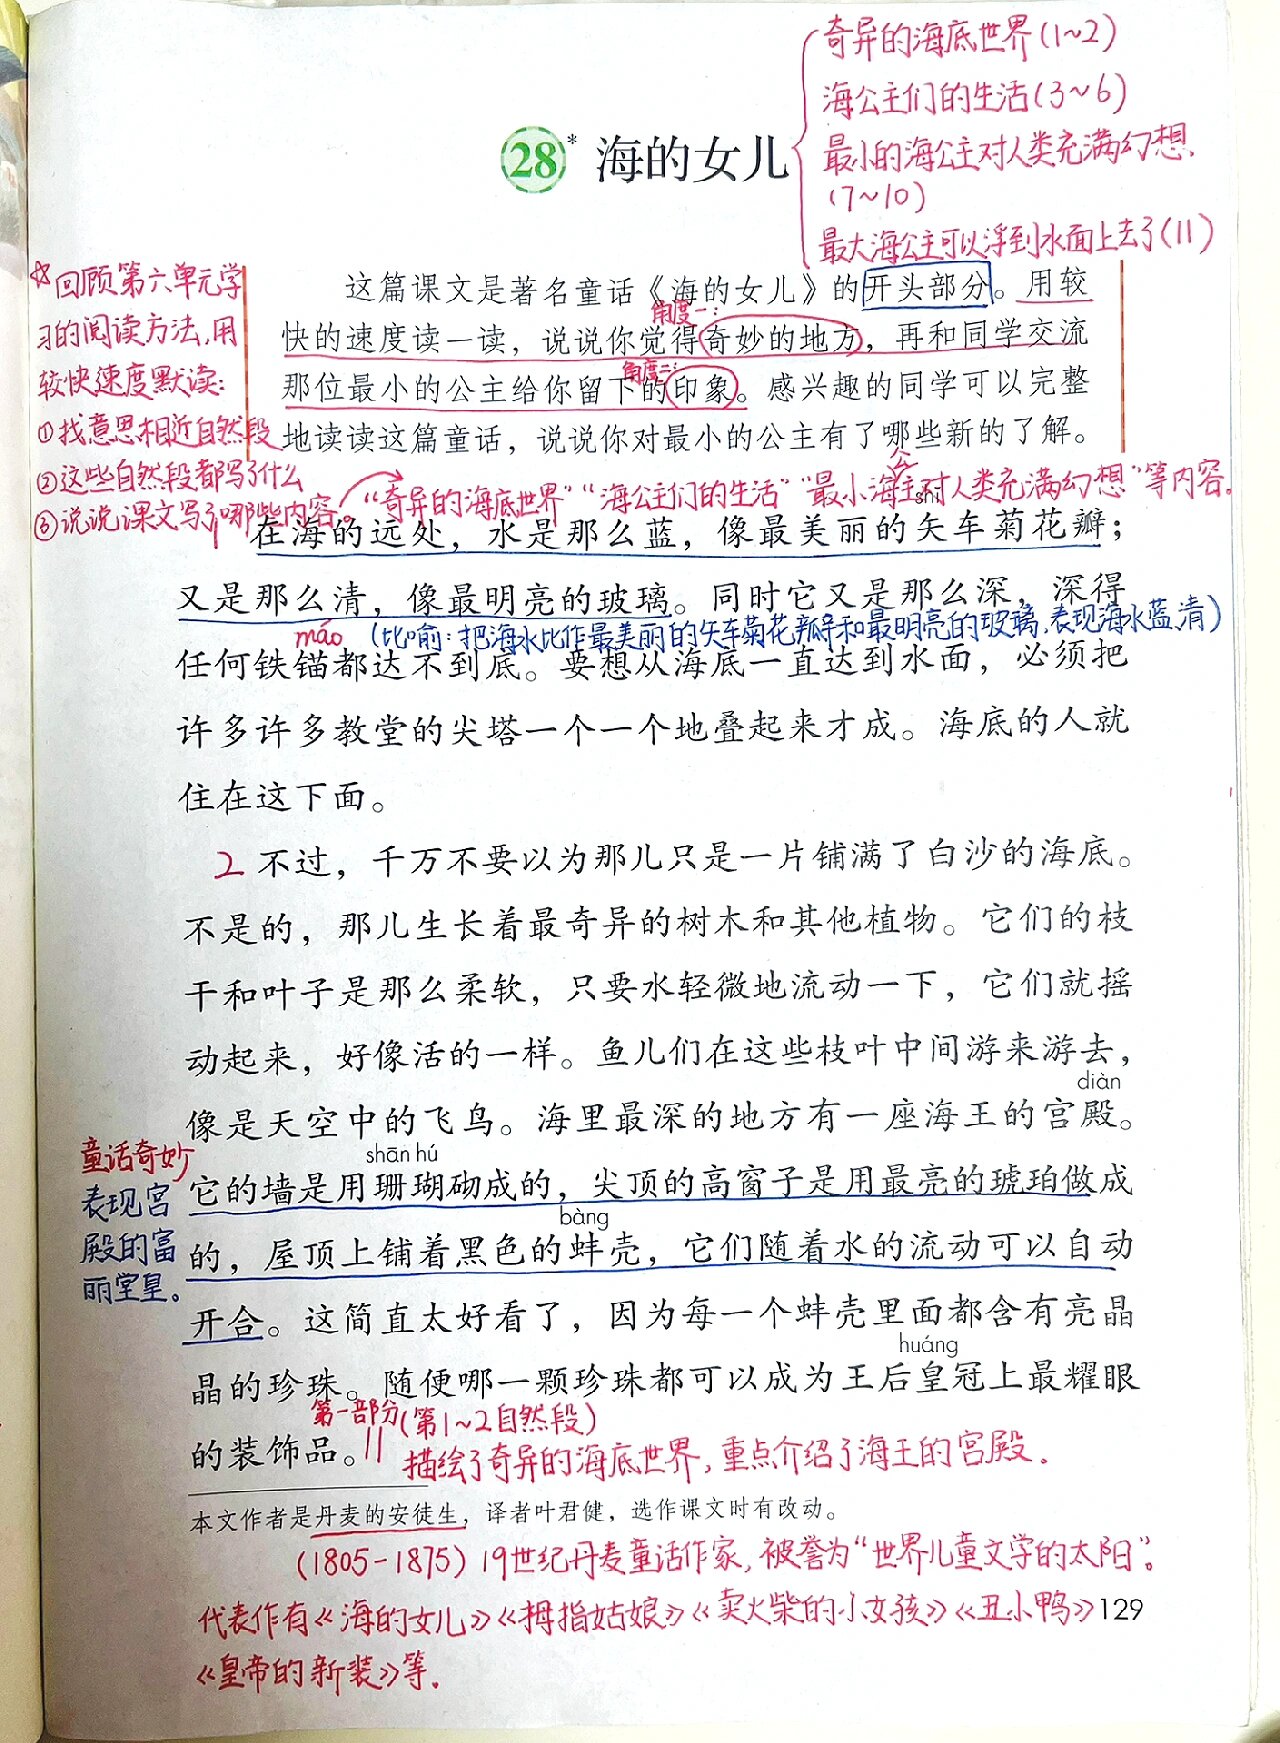 奇异的海底世界(1~2)
海公主们的生活(3~6)
最小的海公主对人类充满幻想.
(7~10)
最大海公主可以浮到水面上去了(11)
28* 海的女儿
☆回顾第六单元学
习的阅读方法,用
较快速度默读:
①找意思相近自然段
②这些自然段都写了什么
③说说课文写了哪些内容。
这篇课文是著名童话《海的女儿》的开头部分。用较
角度一:
快的速度读一读，说说你觉得奇妙的地方，再和同学交流
角度二:
那位最小的公主给你留下的印象。感兴趣的同学可以完整
地读读这篇童话，说说你对最小的公主有了哪些新的了解。
公
“奇异的海底世界”“海公主们的生活”“最小海主对人类充满幻想”等内容.
shǐ
在海的远处，水是那么蓝，像最美丽的矢车菊花瓣；
又是那么清，像最明亮的玻璃。同时它又是那么深，深得
máo (比喻:把海水比作最美丽的矢车菊花瓣和最明亮的玻璃,表现海水蓝,清)
任何铁锚都达不到底。要想从海底一直达到水面，必须把
许多许多教堂的尖塔一个一个地叠起来才成。海底的人就
住在这下面。
2 不过，千万不要以为那儿只是一片铺满了白沙的海底。
不是的，那儿生长着最奇异的树木和其他植物。它们的枝
干和叶子是那么柔软，只要水轻微地流动一下，它们就摇
动起来，好像活的一样。鱼儿们在这些枝叶中间游来游去，
diàn
像是天空中的飞鸟。海里最深的地方有一座海王的宫殿。
shān hú
它的墙是用珊瑚砌成的，尖顶的高窗子是用最亮的琥珀做成
bàng
的，屋顶上铺着黑色的蚌壳，它们随着水的流动可以自动
开合。这简直太好看了，因为每一个蚌壳里面都含有亮晶
huáng
晶的珍珠。随便哪一颗珍珠都可以成为王后皇冠上最耀眼
的装饰品。
童话奇妙
表现宫
殿的富
丽堂皇。
第一部分(第1~2自然段)
描绘了奇异的海底世界,重点介绍了海王的宫殿.
本文作者是丹麦的安徒生，译者叶君健，选作课文时有改动。
(1805-1875) 19世纪丹麦童话作家,被誉为“世界儿童文学的太阳”。
代表作有《海的女儿》《拇指姑娘》《卖火柴的小女孩》《丑小鸭》
《皇帝的新装》等.
129